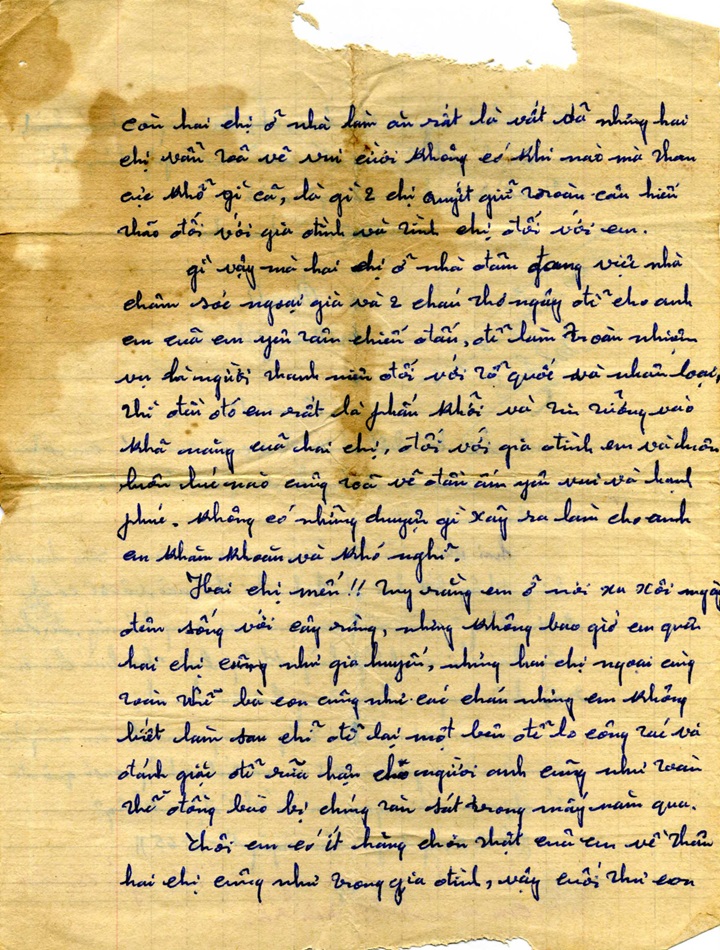 còn hai chị ở nhà làm ăn rất là vất vã nhưng hai
chị vẫn toã vẽ vui cười không có khi nào mà than
cực khổ gì cã, là gì 2 chị quyết giữ troàn căn hiếu
thão đối với gia đình và tình chị đối với em.
gì vậy mà hai chị ở nhà đãm đang việc nhà
châm sóc ngoại già và 2 cháu thơ ngây để cho anh
em cuã em yên tâm chiến đấu, để làm troàn nhiệm
vụ là người thanh niên đối với tổ quốc và nhân loại,
thì đều đó em rất là phấn khỡi và tin tưỡng vào
khã năng cuã hai chị, đối với gia đình em và luôn
luôn lúc nào cũng toã vẽ đầm ấm yên vui và hạnh
phúc. không có những chuyện gì xãy ra làm cho anh
em khăn khoăn và khó nghĩ.
Hai chị mến!! tuy rằng em ở nơi xa xôi ngày
đêm sống với cây rừng, nhưng không bao giờ em quên
hai chị cũng như gia huyến, nhưng hai chị ngoại cùng
toàn thể bà con cũng như các cháu nhưng em không
biết làm sau chỉ để lại một bên để lo công tác và
đánh giặc để rữa hận cho người anh cũng như toàn
thể đồng bào bị chúng tàn sát trong mấy năm qua.
Thôi em có ít hàng chân thật cuã em về thăm
hai chị cũng như trong gia đình, vậy cuối thư em